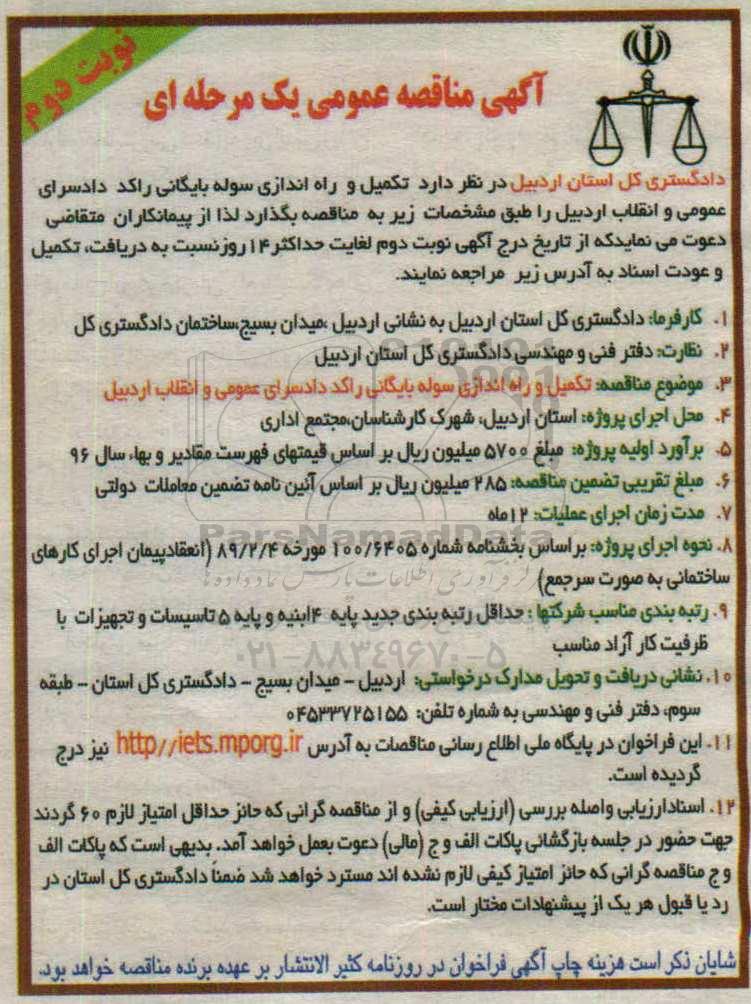 نوبت دوم
آگهی مناقصه عمومی یک مرحله ای
دادگستری کل استان اردبیل در نظر دارد تکمیل و راه اندازی سوله بایگانی راکد دادسرای
عمومی و انقلاب اردبیل را طبق مشخصات زیر به مناقصه بگذارد لذا از پیمانکاران متقاضی
دعوت می نمایدکه از تاریخ درج آگهی نوبت دوم لغایت حداکثر ۱۴ روزنسبت به دریافت، تکمیل
و عودت اسناد به آدرس زیر مراجعه نمایند.
۱. کارفرما: دادگستری کل استان اردبیل به نشانی اردبیل ،میدان بسیج،ساختمان دادگستری کل
۲. نظارت: دفتر فنی و مهندسی دادگستری کل استان اردبیل
۳. موضوع مناقصه: تکمیل و راه اندازی سوله بایگانی راکد دادسرای عمومی و انقلاب اردبیل
۴. محل اجرای پروژه: استان اردبیل، شهرک کارشناسان،مجتمع اداری
۵. برآورد اولیه پروژه: مبلغ ۵۷۰۰ میلیون ریال بر اساس قیمتهای فهرست مقادیر و بهاء سال ۹۶
۶. مبلغ تقریبی تضمین مناقصه: ۲۸۵ میلیون ریال بر اساس آئین نامه تضمین معاملات دولتی
۷. مدت زمان اجرای عملیات: ۱۲ماه
ParsNamadData
۸. نحوه اجرای پروژه: براساس بخشنامه شماره ۱۰۰/۶۴۰۵ مورخه ۸۹/۲/۴ (انعقادپیمان اجرای کارهای
ساختمانی به صورت سرجمع)
۹. رتبه بندی مناسب شرکتها : حداقل رتبه بندی جدید پایه ۴ابنیه و پایه ۵ تاسیسات و تجهیزات با
ظرفیت کار آزاد مناسب
۰۲۱-۸۸۳۴۹۶۷۰-۵
۱۰. نشانی دریافت و تحویل مدارک درخواستی: اردبیل - میدان بسیج - دادگستری کل استان - طبقه
سوم، دفتر فنی و مهندسی به شماره تلفن: ۰۴۵۳۳۷۲۵۱۵۵
۱۱. این فراخوان در پایگاه ملی اطلاع رسانی مناقصات به آدرس http//iets.mporg.ir نیز درج
گردیده است.
۱۲. اسنادارزیابی واصله بررسی (ارزیابی کیفی) و از مناقصه گرانی که حائز حداقل امتیاز لازم ۶۰ گردند
جهت حضور در جلسه بازگشائی پاکات الف و ج (مالی) دعوت بعمل خواهد آمد. بدیهی است که پاکات الف
و ج مناقصه گرانی که حائز امتیاز کیفی لازم نشده اند مسترد خواهد شد ضمناً دادگستری کل استان در
رد یا قبول هر یک از پیشنهادات مختار است.
شایان ذکر است هزینه چاپ آگهی فراخوان در روزنامه کثیر الانتشار بر عهده برنده مناقصه خواهد بود.